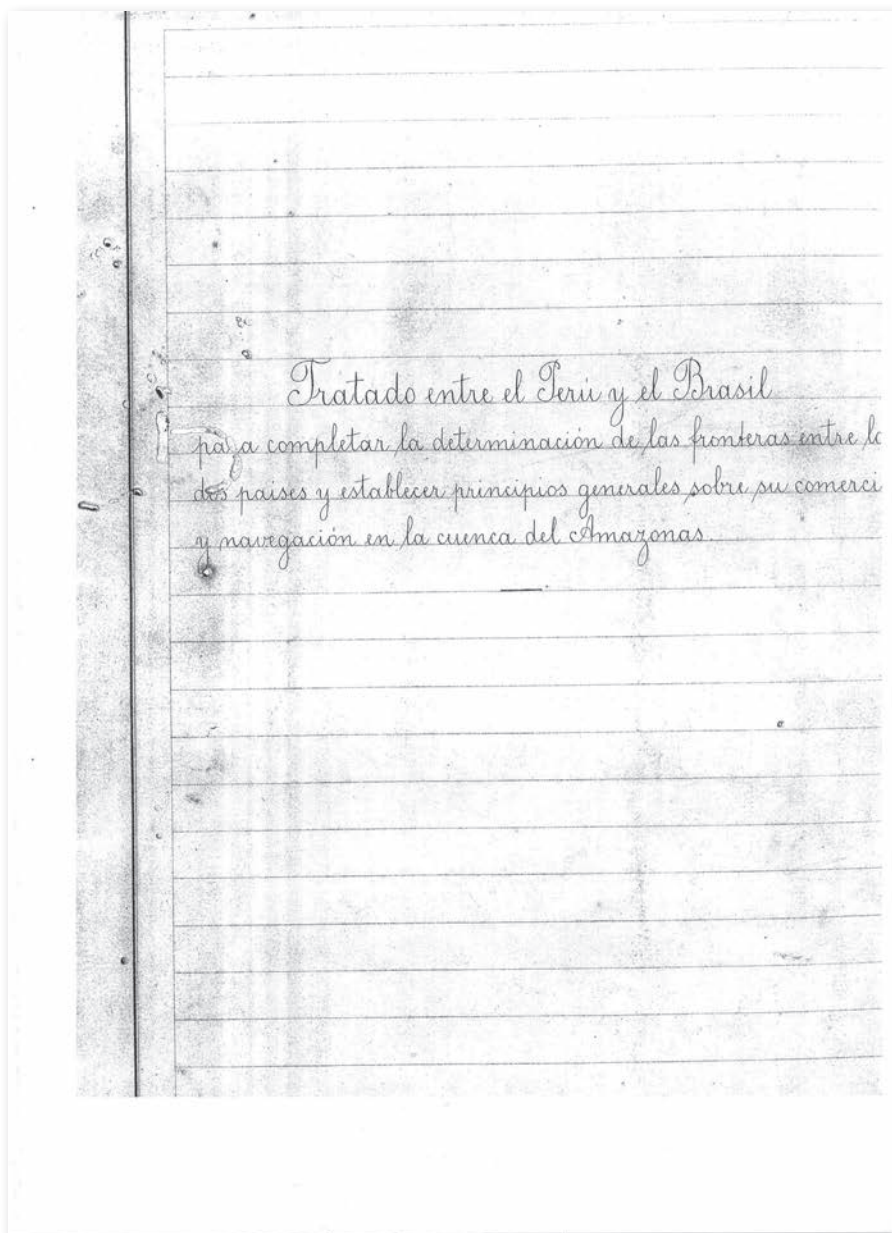 Tratado entre el Perú y el Brasil
para completar la determinación de las fronteras entre lo
dos paises y establecer principios generales sobre su comerci
y navegación en la cuenca del Amazonas.